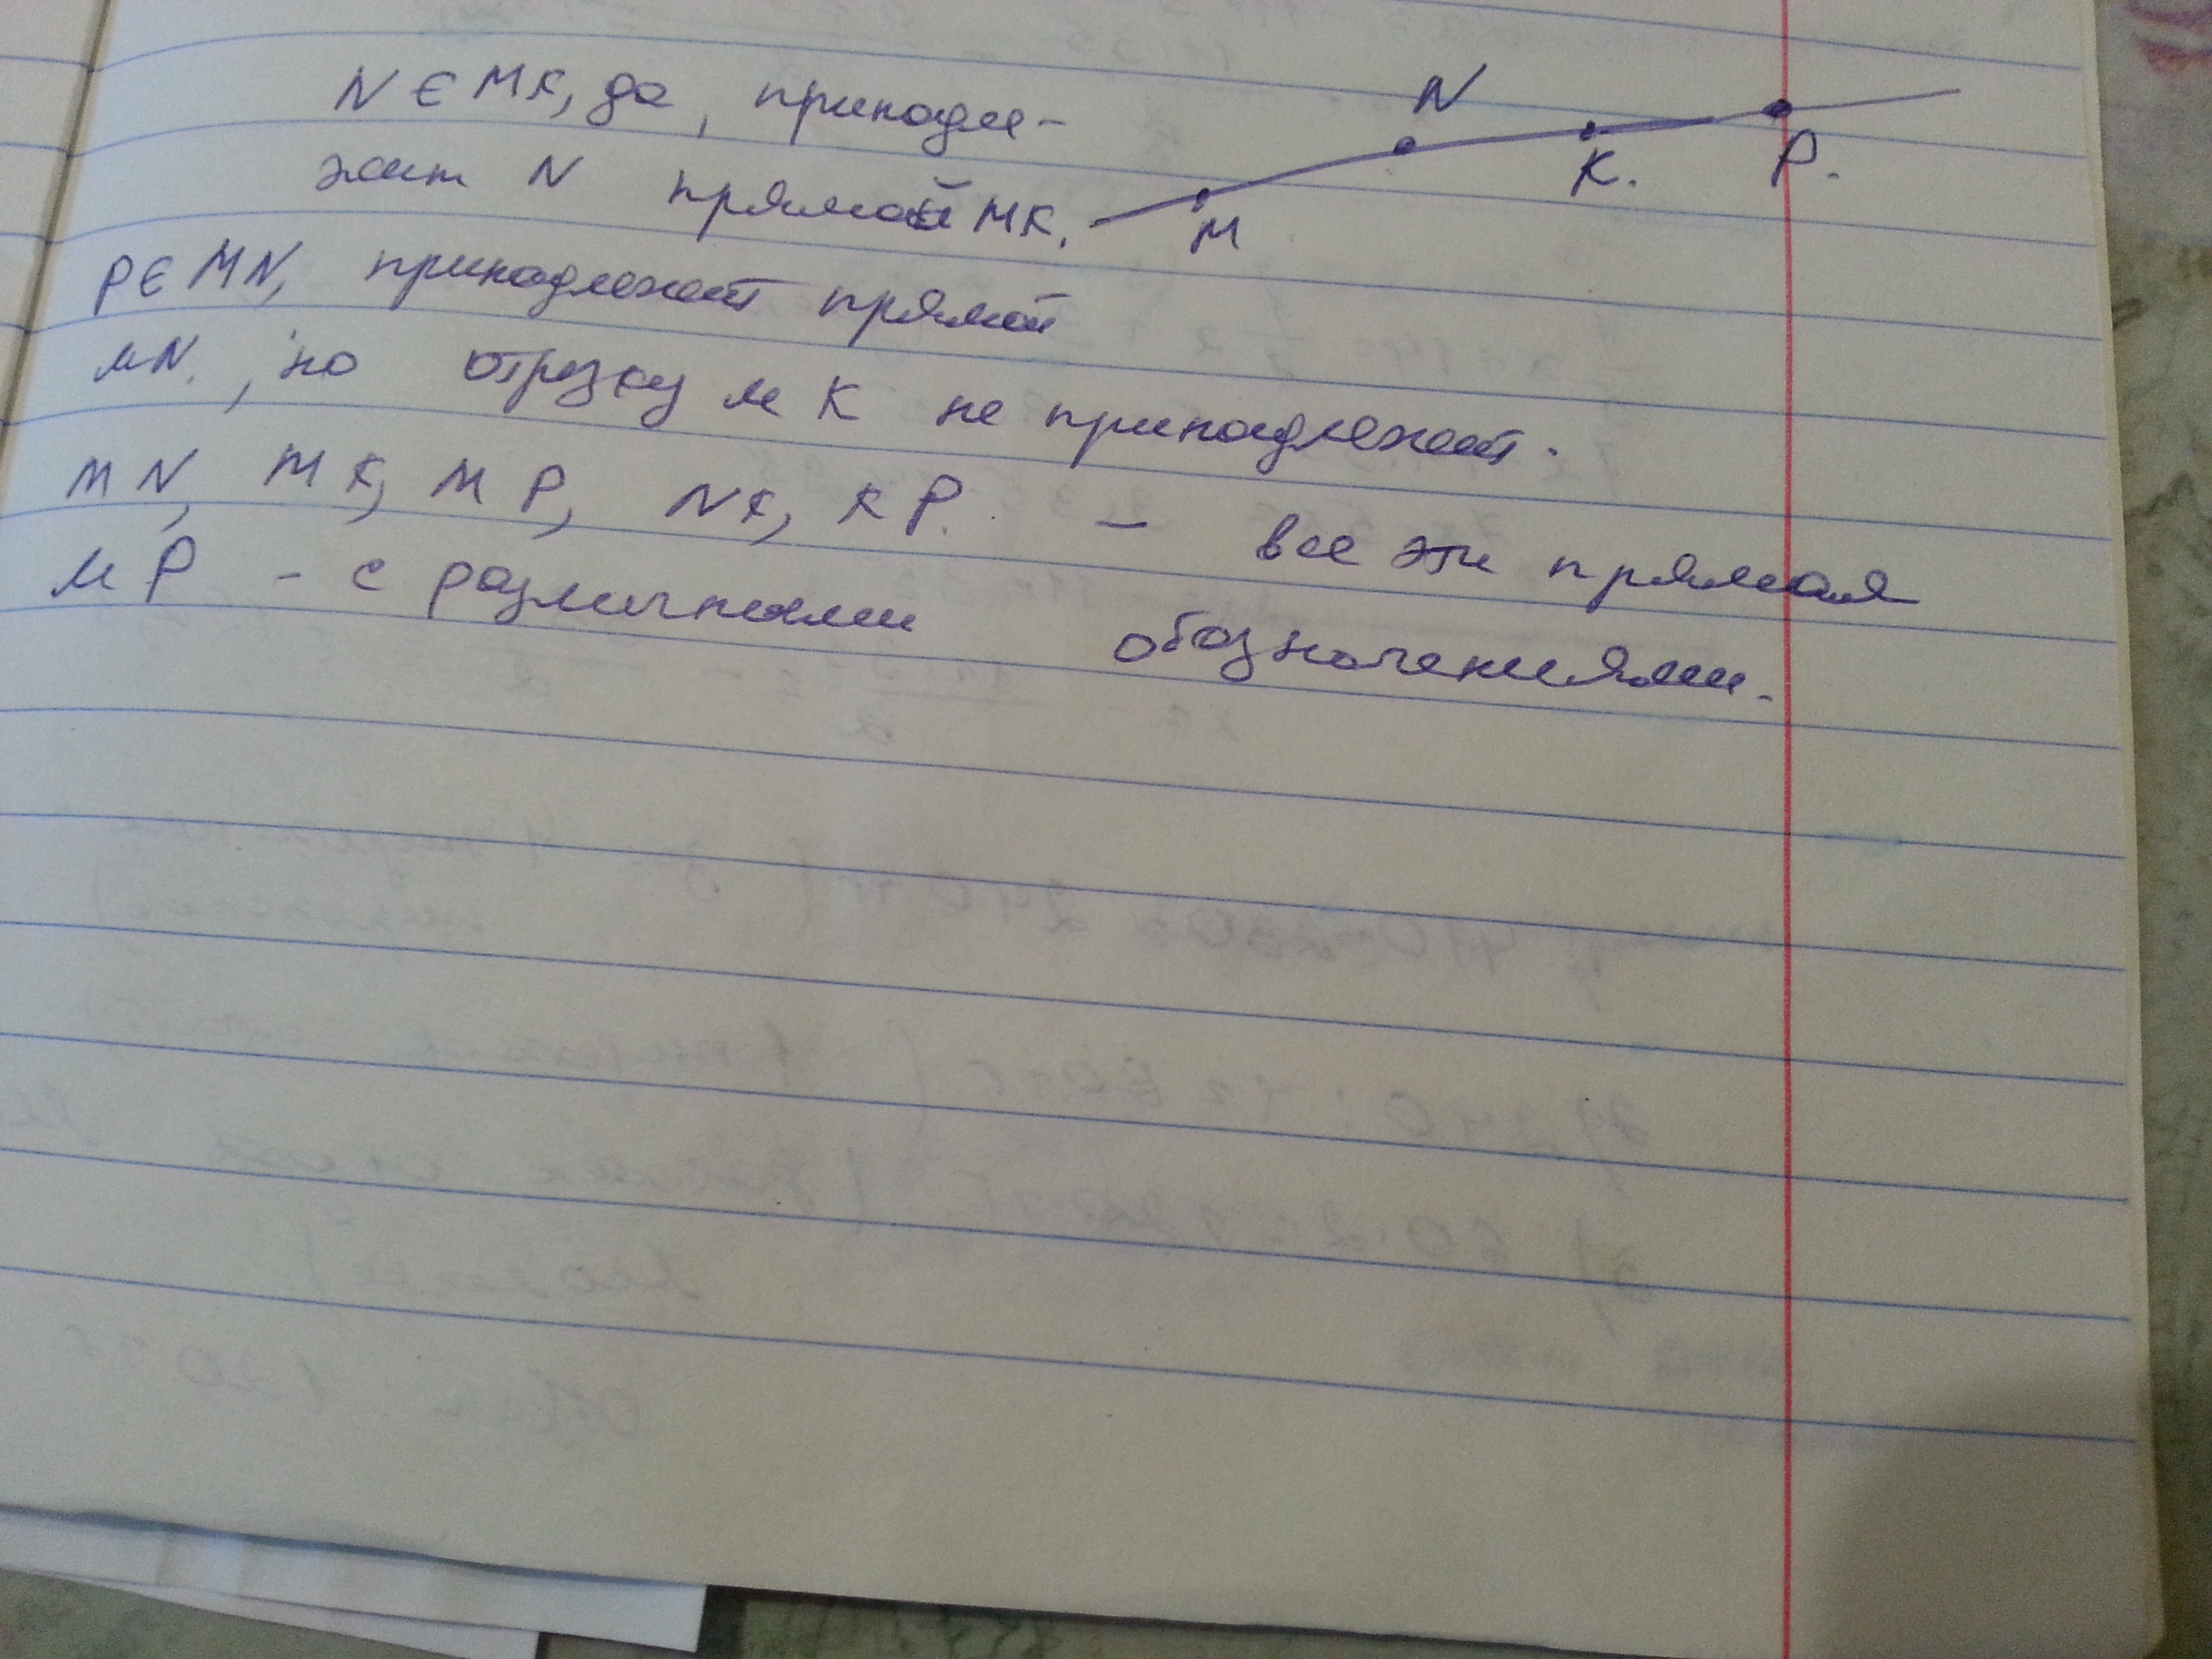 N ∈ MK, да, принадле-
жит N прямой MK.
P ∈ MN, принадлежит прямой
MN, но отрезку MK не принадлежит.
MN, MK, MP, NK, KP. - все эти прямая
MP - с различными обозначениями.
N
M
K.
P.